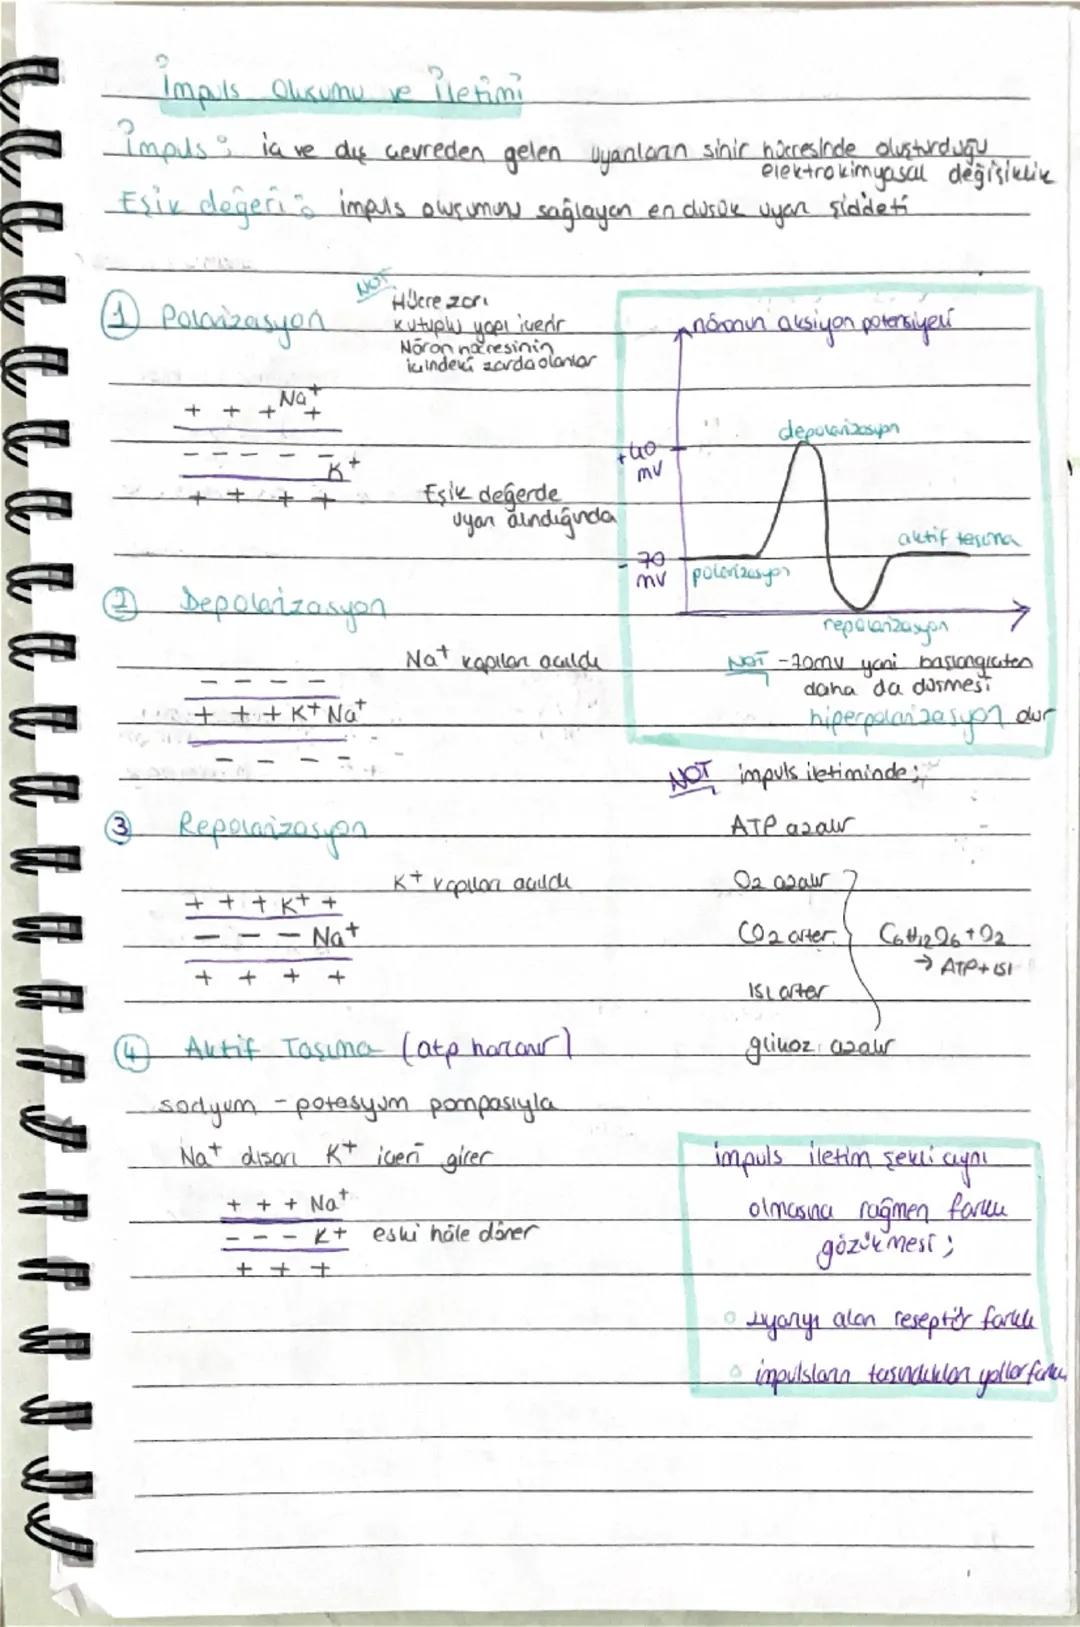 İmpuls Oluşumu ve İletimi
İmpuls: iç ve dış çevreden gelen uyarıların sinir hücresinde oluşturduğu
elektrokimyasal değişiklik
Eşik değeri: impuls oluşumunu sağlayan en düşük uyarı şiddeti
① Polarizasyon
NOT
Hücre zarı
kutuplu yapı içerir
Nöron hücresinin
içindeki zarda olanlar
+ + + Na+ +
- - - - - K+
+ + + +
Eşik değerde
uyarı alındığında
nöronun aksiyon potansiyeli
depolarizasyon
+40
mV
aktif taşıma
-70
mV
polarizasyon
repolarizasyon
NOT -70mv yani başlangıçtan
daha da düşmesi
hiperpolarizasyon dur
② Depolarizasyon
Na+ kapıları açıldı
- - - -
+ + + K+ Na+
- - - -
NOT impuls iletiminde;
③ Repolarizasyon
K+ kapıları açıldı
+ + + K+ +
- - - Na+
+ + + +
ATP azalır
O2 azalır
CO2 artar
C6H12O6+O2
→ ATP+ısı
Isı artar
glikoz azalır
④ Aktif Taşıma (atp harcanır)
sodyum - potasyum pompasıyla
Na+ dışarı K+ içeri girer
+ + + Na+
- - - K+ eski hâle döner
+ + +
impuls iletim şekli aynı
olmasına rağmen farklı
gözükmesi;
○ uyarıyı alan reseptör farklı
○ impulsların taşındıkları yollar farklı